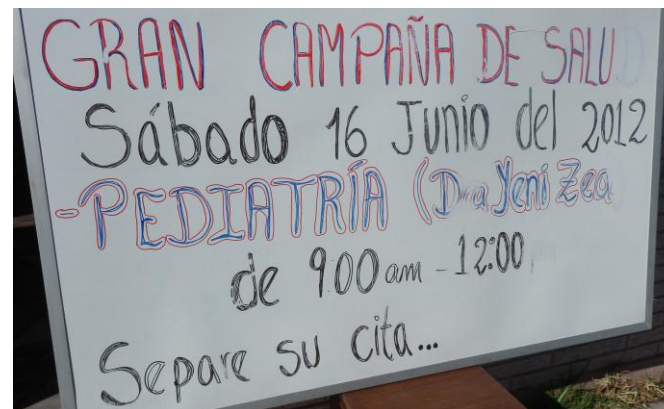 GRAN CAMPAÑA DE SALUD
Sábado 16 Junio del 2012
-PEDIATRÍA (Dra Yeni Zea
de 9:00 am - 12:00 pm
Separe su cita...